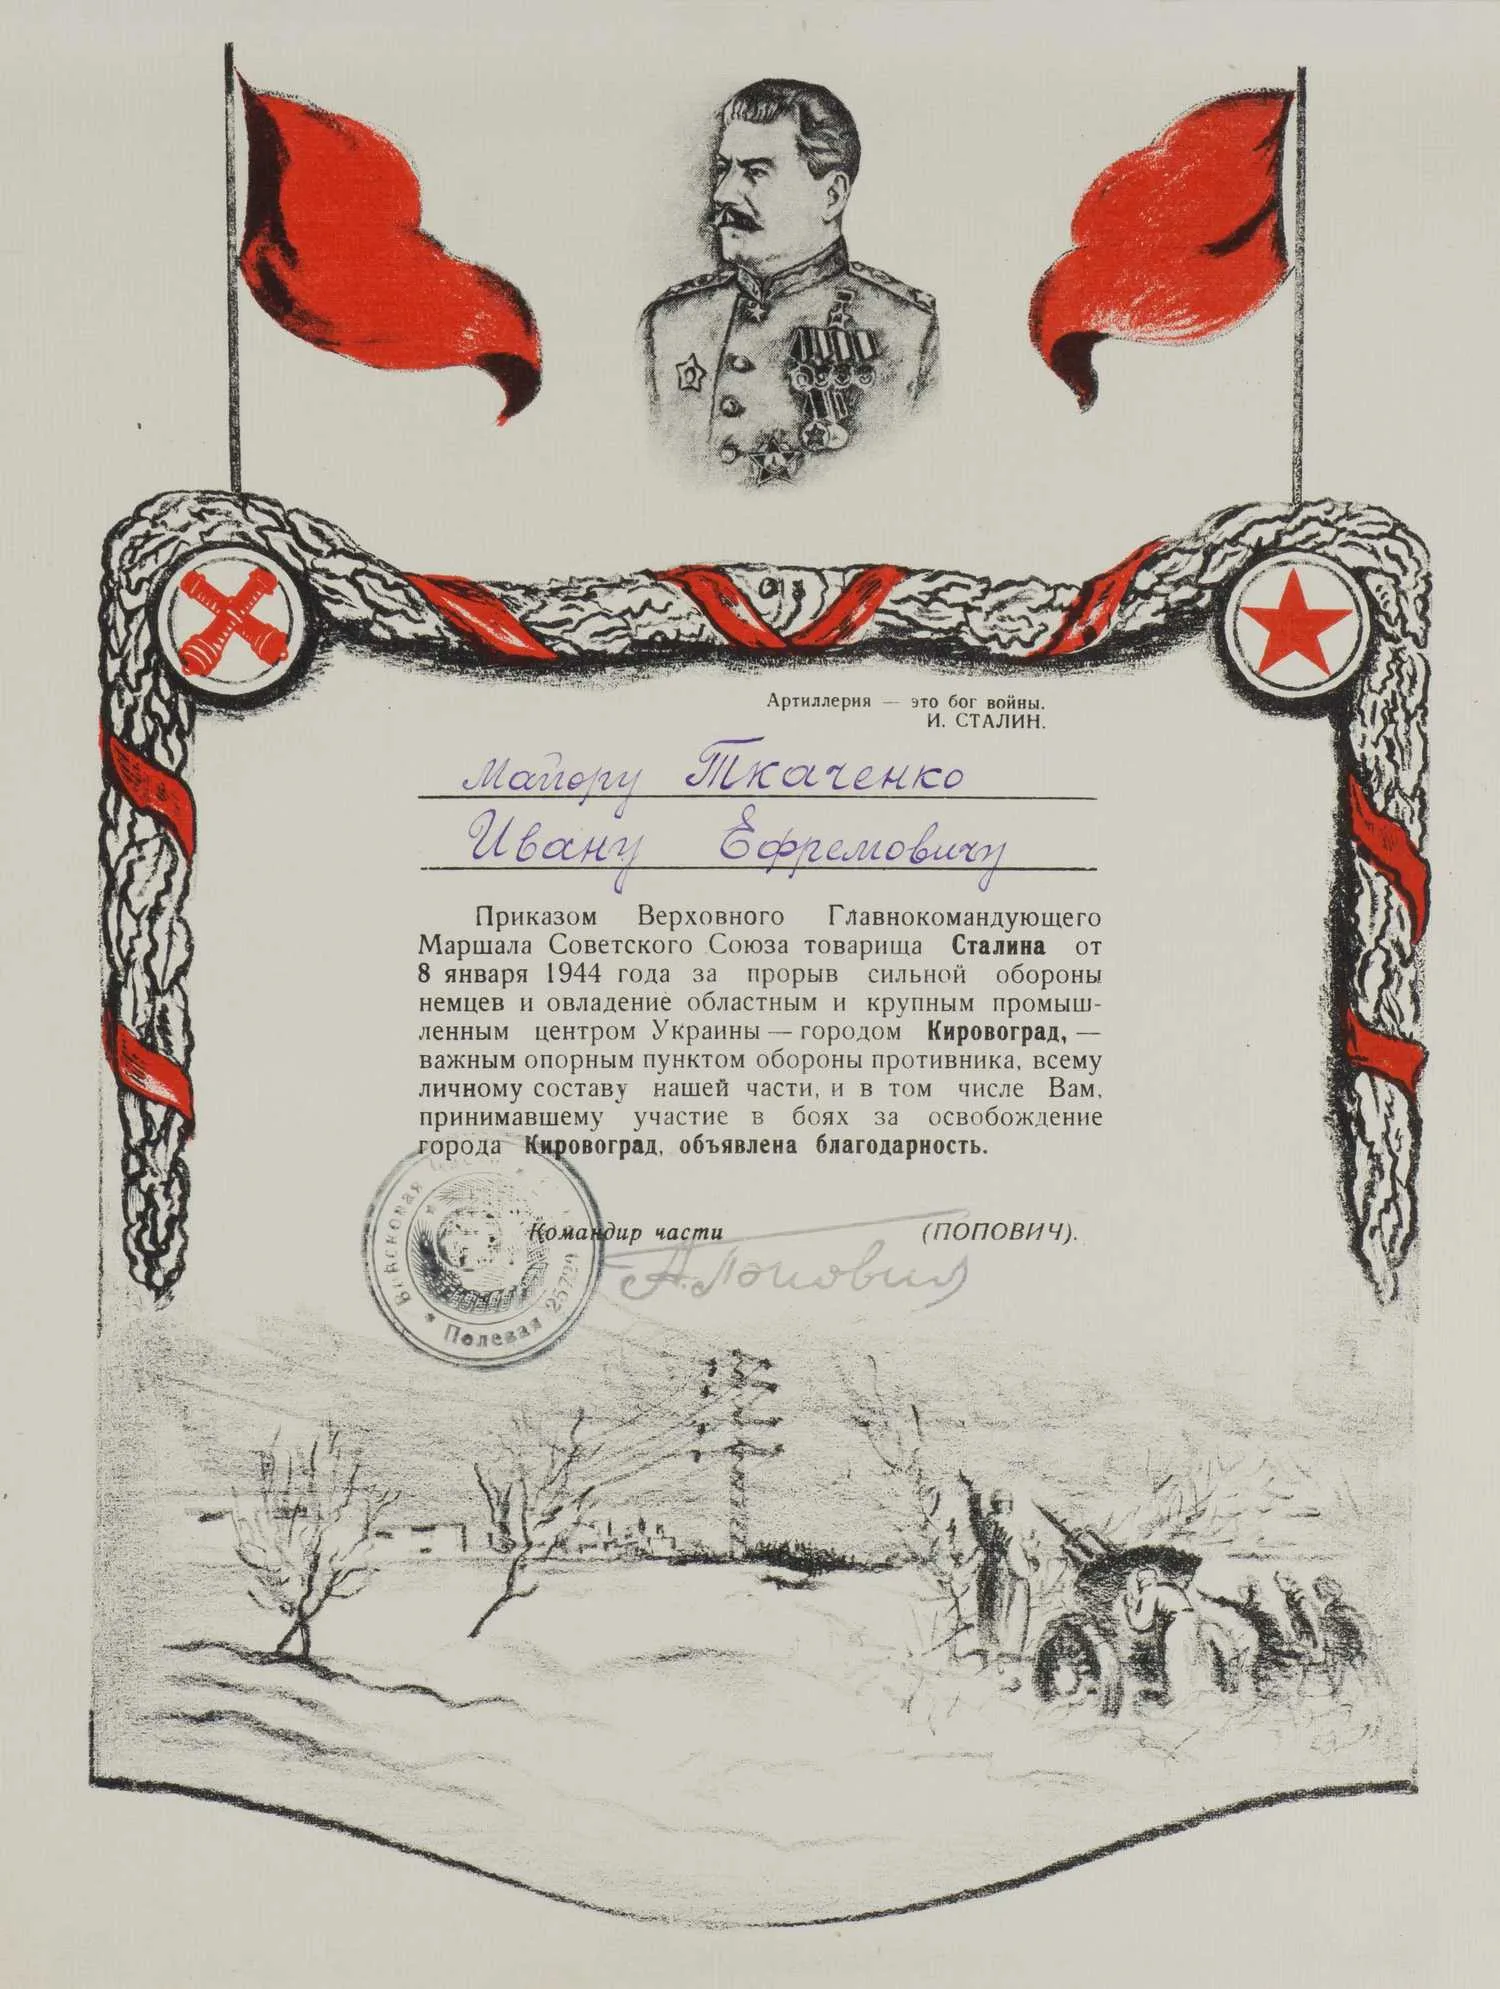 Артиллерия — это бог войны.
И. СТАЛИН.
Майору Ткаченко
Ивану Ефремовичу
Приказом Верховного Главнокомандующего
Маршала Советского Союза товарища Сталина от
8 января 1944 года за прорыв сильной обороны
немцев и овладение областным и крупным промыш-
ленным центром Украины — городом Кировоград, —
важным опорным пунктом обороны противника, всему
личному составу нашей части, и в том числе Вам,
принимавшему участие в боях за освобождение
города Кировоград, объявлена благодарность.
Командир части (ПОПОВИЧ).
А. Попович
Войсковая часть
* Полевая 25799